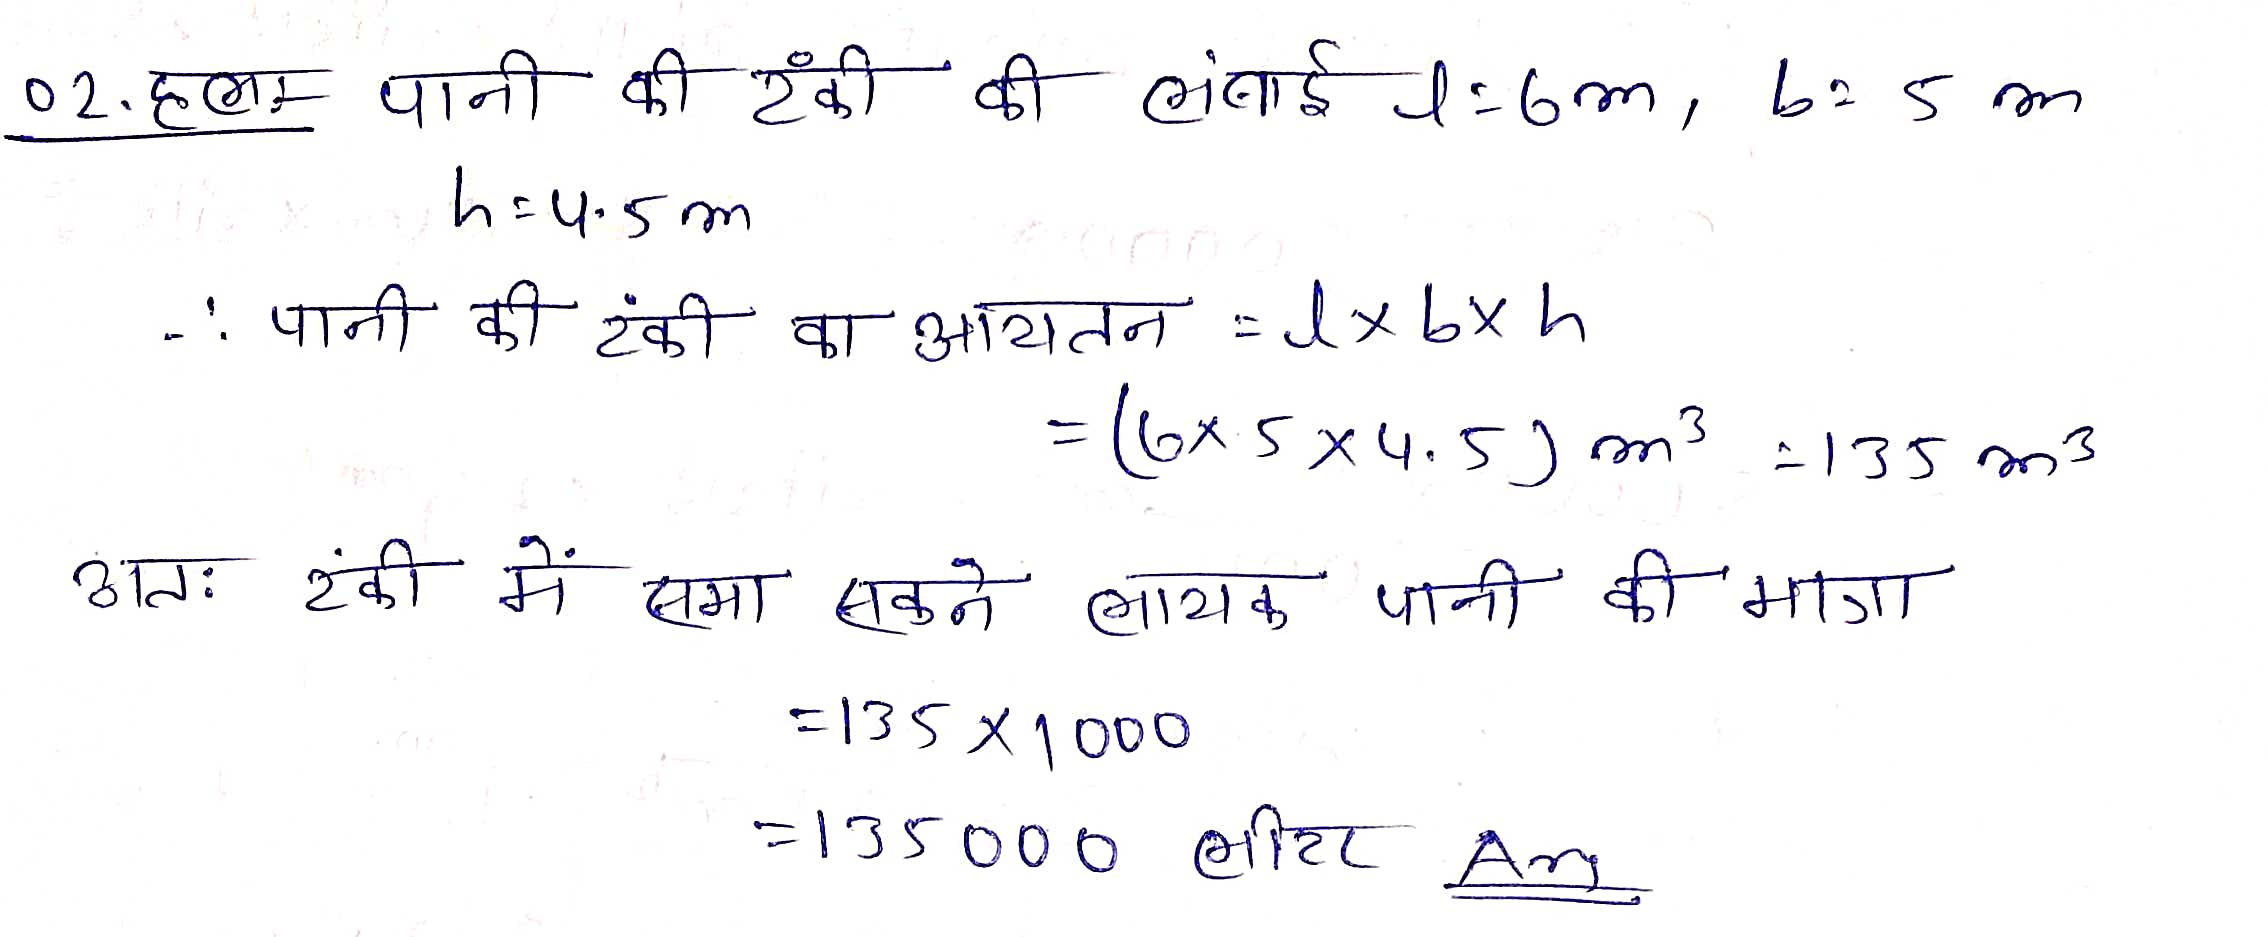 02. हलः- पानी की टँकी की लंबाई l = 6m, b = 5 m
h = 4.5 m
∴ पानी की टंकी का आयतन = l × b × h
= (6 × 5 × 4.5) m³ = 135 m³
अतः टंकी में समा सकने लायक पानी की मात्रा
= 135 × 1000
= 135000 लीटर Ans